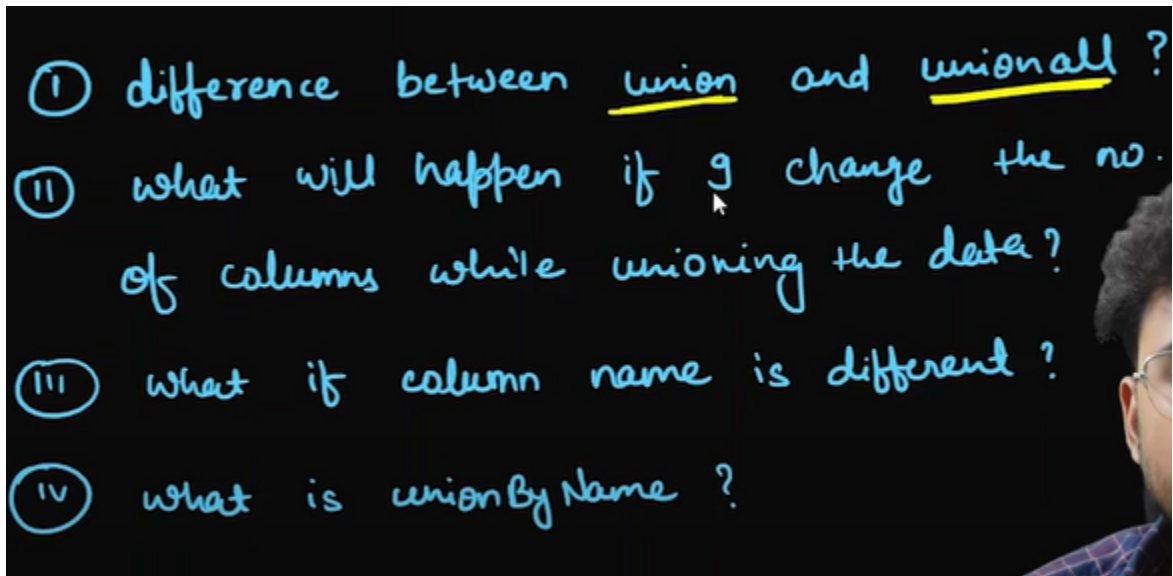 I difference between union and unionall ?
II what will happen if I change the no.
of columns while unioning the data?
III what if column name is different?
IV what is unionByName ?